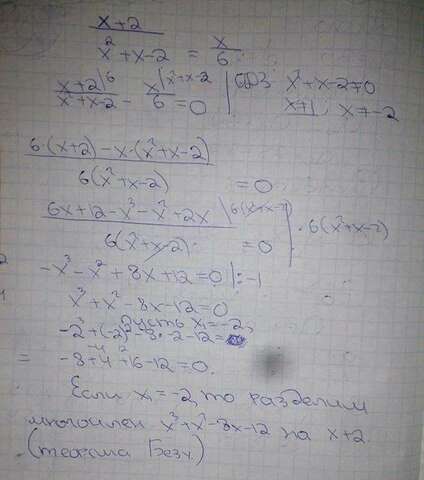 x+2 / x²+x-2 = x/6
x+2|⁶ / x²+x-2 - x|x²+x-2 / 6 = 0 | ОДЗ x²+x-2≠0
x≠1; x≠-2
6·(x+2)-x·(x²+x-2) / 6(x²+x-2) = 0
6x+12-x³-x²+2x / 6(x²+x-2) = 0 |·6(x²+x-2)
-x³-x²+8x+12=0 |:-1
x³+x²-8x-12=0
Пусть x₁=-2,
-2³+(-2)²-8·-2-12=
= -8+4+16-12=0.
Если x₁=-2, то разделим
многочлен x³+x²-8x-12 на x+2.
(теорема Безу.)